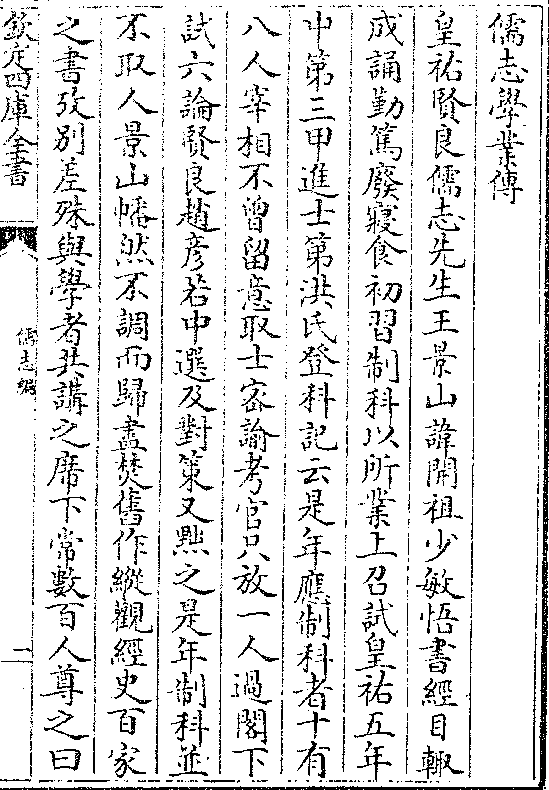 儒志學業傳
皇祐賢良儒志先生王景山諱開祖少敏悟書經目輒
成誦勤篤廢寢食初習制科以所業上召試皇祐五年
中第三甲進士第洪氏登科記云是年應制科者十有
八人宰相不曾留意取士密諭考官只放一人過閣下
試六論賢良趙彦若中選及對策又黜之是年制科並
不取人景山幡然不調而歸盡焚舊作縱觀經史百家
之書攷别差殊與學者共講之席下常數百人尊之曰
欽定四庫全書
儒志編
二